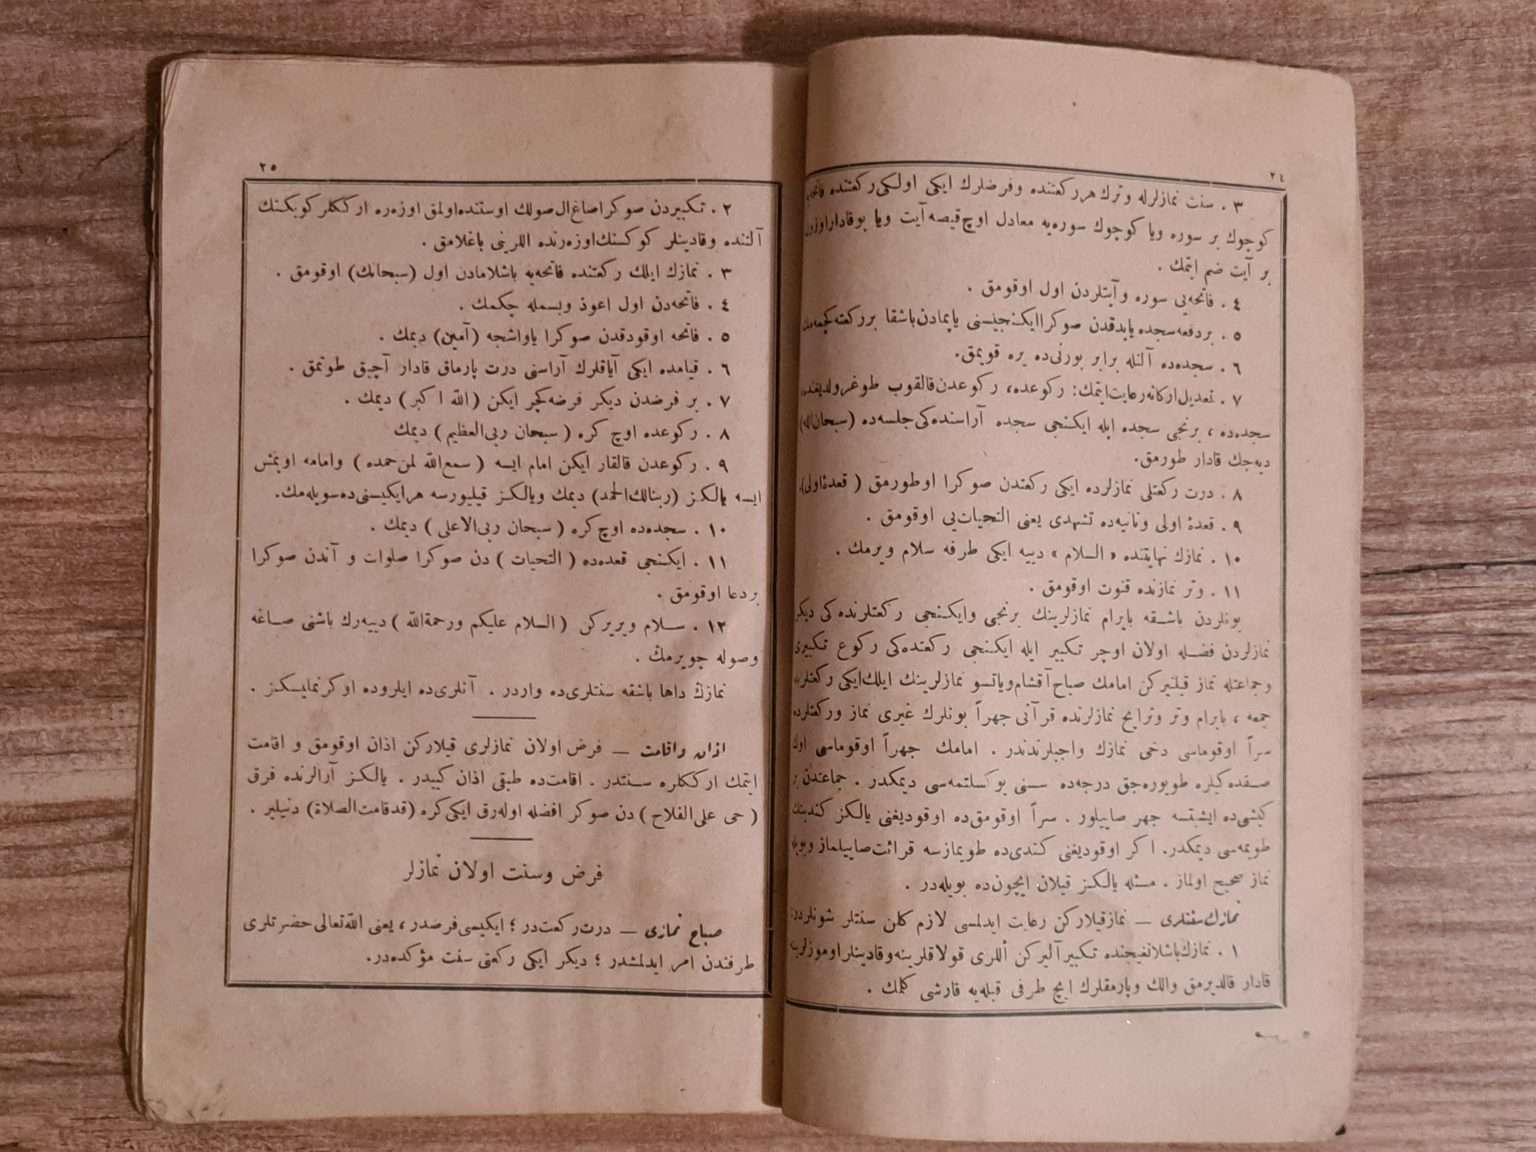 ٢٤
٣ . سنت نمازلرله وترك هر ركعتنده وفرضلرك ايكى اولكى ركعتنده فاتحه‌يه
كوچوك بر سوره ويا كوچوك سوره‌يه معادل اوچ قيصه آيت ويا بو قادار اوزون
بر آيت ضم ايتمك .
٤ . فاتحه‌يى سوره و آيتلردن اول اوقومق .
٥ . بر دفعه سجده ياپدقدن صوكرا ايكنجيسنى ياپمادن باشقا بر ركعته كچمه‌مك
٦ . سجده‌ده آلنله برابر بورنى‌ده يره قويمق.
٧ . تعديل اركانه رعايت ايتمك: ركوعده، ركوعدن قالقوب طوغرولديغنده،
سجده‌ده ، برنجى سجده ايله ايكنجى سجده آراسنده‌كى جلسه‌ده (سبحان الله)
ديه‌جك قادار طورمق.
٨ . درت ركعتلى نمازلرده ايكى ركعتدن صوكرا اوطورمق ( قعدۀ اولى).
٩ . قعدۀ اولى وثانيه‌ده تشهدى يعنى التحيات‌يى اوقومق .
١٠ . نمازك نهايتنده « السلام » دييه ايكى طرفه سلام ويرمك .
١١ . وتر نمازنده قنوت اوقومق .
بونلردن باشقه بايرام نمازلرينك برنجى وايكنجى ركعتلرنده‌كى ديكر
نمازلردن فضله اولان اوچر تكبير ايله ايكنجى ركعتده‌كى ركوع تكبيرى
وجماعتله نماز قيلنيركن امامك صباح آقشام وياتسو نمازلرينك ايلك ايكى ركعتلريله
جمعه ، بايرام وتر وتراويح نمازلرنده قرآنى جهراً بونلرك غيرى نماز وركعتلرده
سراً اوقوماسى دخى نمازك واجبلرندندر . امامك جهراً اوقوماسى اوك
صفده‌كيلره طويوره‌جق درجه‌ده سسنى يوكسلتمه‌سى ديمكدر . جماعتدن بر
كيشى‌ده ايشيتسه جهر صاييلور . سراً اوقومق‌ده اوقوديغنى يالكز كندينك
طويمه‌سى ديمكدر. اكر اوقوديغنى كندى‌ده طويمازسه قرائت صاييلماز وبويله
نماز صحيح اولماز . مسئله يالكز قيلان ايچون‌ده بويله‌در .
نمازك سنتلرى — نماز قيلاركن رعايت ايدلمسى لازم كلن سنتلر شونلردر:
١ . نمازك باشلانغيجنده تكبير آليركن اللرى قولاقلرينه وقادينلر اوموزلرينه
قادار قالديرمق والك وپارمقلرك ايچ طرفى قبله‌يه قارشى كلمك .
٢٥
٢ . تكبيردن صوكرا صاغ ال صولك اوستنده اولمق اوزه‌ره ارككلر كوبكنك
آلتنده وقادينلر كوكسنك اوزه‌رنده اللرينى باغلامق .
٣ . نمازك ايلك ركعتنده فاتحه‌يه باشلامادن اول (سبحانك) اوقومق .
٤ . فاتحه‌دن اول اعوذ وبسمله چكمك .
٥ . فاتحه اوقودقدن صوكرا ياواشجه (آمين) ديمك .
٦ . قيامده ايكى آياقلرك آراسنى درت پارماق قادار آچيق طوتمق .
٧ . بر فرضدن ديكر فرضه كچر ايكن (الله اكبر) ديمك .
٨ . ركوعده اوچ كره ( سبحان ربى العظيم ) ديمك
٩ . ركوعدن قالقار ايكن امام ايسه ( سمع الله لمن حمده ) وامامه اويمش
ايسه يالكز (ربنا لك الحمد) ديمك ويالكز قيليورسه هر ايكيسنى‌ده سويله‌مك.
١٠ . سجده‌ده اوچ كره ( سبحان ربى الاعلى ) ديمك .
١١ . ايكنجى قعده‌ده ( التحيات ) دن صوكرا صلوات و آندن صوكرا
بر دعا اوقومق .
١٢ . سلام ويريركن ( السلام عليكم ورحمة الله ) دييه‌رك باشنى صاغه
وصوله چويرمك .
نمازك داها باشقه سنتلرى‌ده واردر . آنلرى‌ده ايلروده اوكرنمليسكز .
اذان واقامت — فرض اولان نمازلرى قيلاركن اذان اوقومق و اقامت
ايتمك ارككلره سنتدر . اقامت‌ده طبقى اذان كبيدر . يالكز آرالرنده فرق
( حى على الفلاح ) دن صوكر افضله اوله‌رق ايكى كره (قد قامت الصلاة) دنيلير .
فرض وسنت اولان نمازلر
صباح نمازى — درت ركعت‌در ؛ ايكيسى فرضدر ، يعنى الله تعالى حضرتلرى
طرفندن امر ايدلمشدر ؛ ديكر ايكى ركعتى سنت مؤكده‌در.